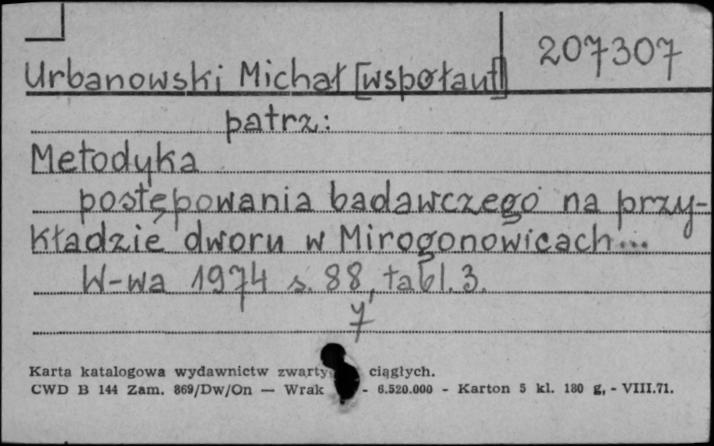 207307
Urbanowski Michał [współaut]
patrz:
Metodyka
postępowania badawczego na przy-
kładzie dworu w Mirogonowicach...
W-wa 1974 s. 88, tabl. 3.
7
Karta katalogowa wydawnictw zwarty ciągłych.
CWD B 144 Zam. 869/Dw/On — Wrak - 6.520.000 - Karton 5 kl. 180 g, - VIII.71.